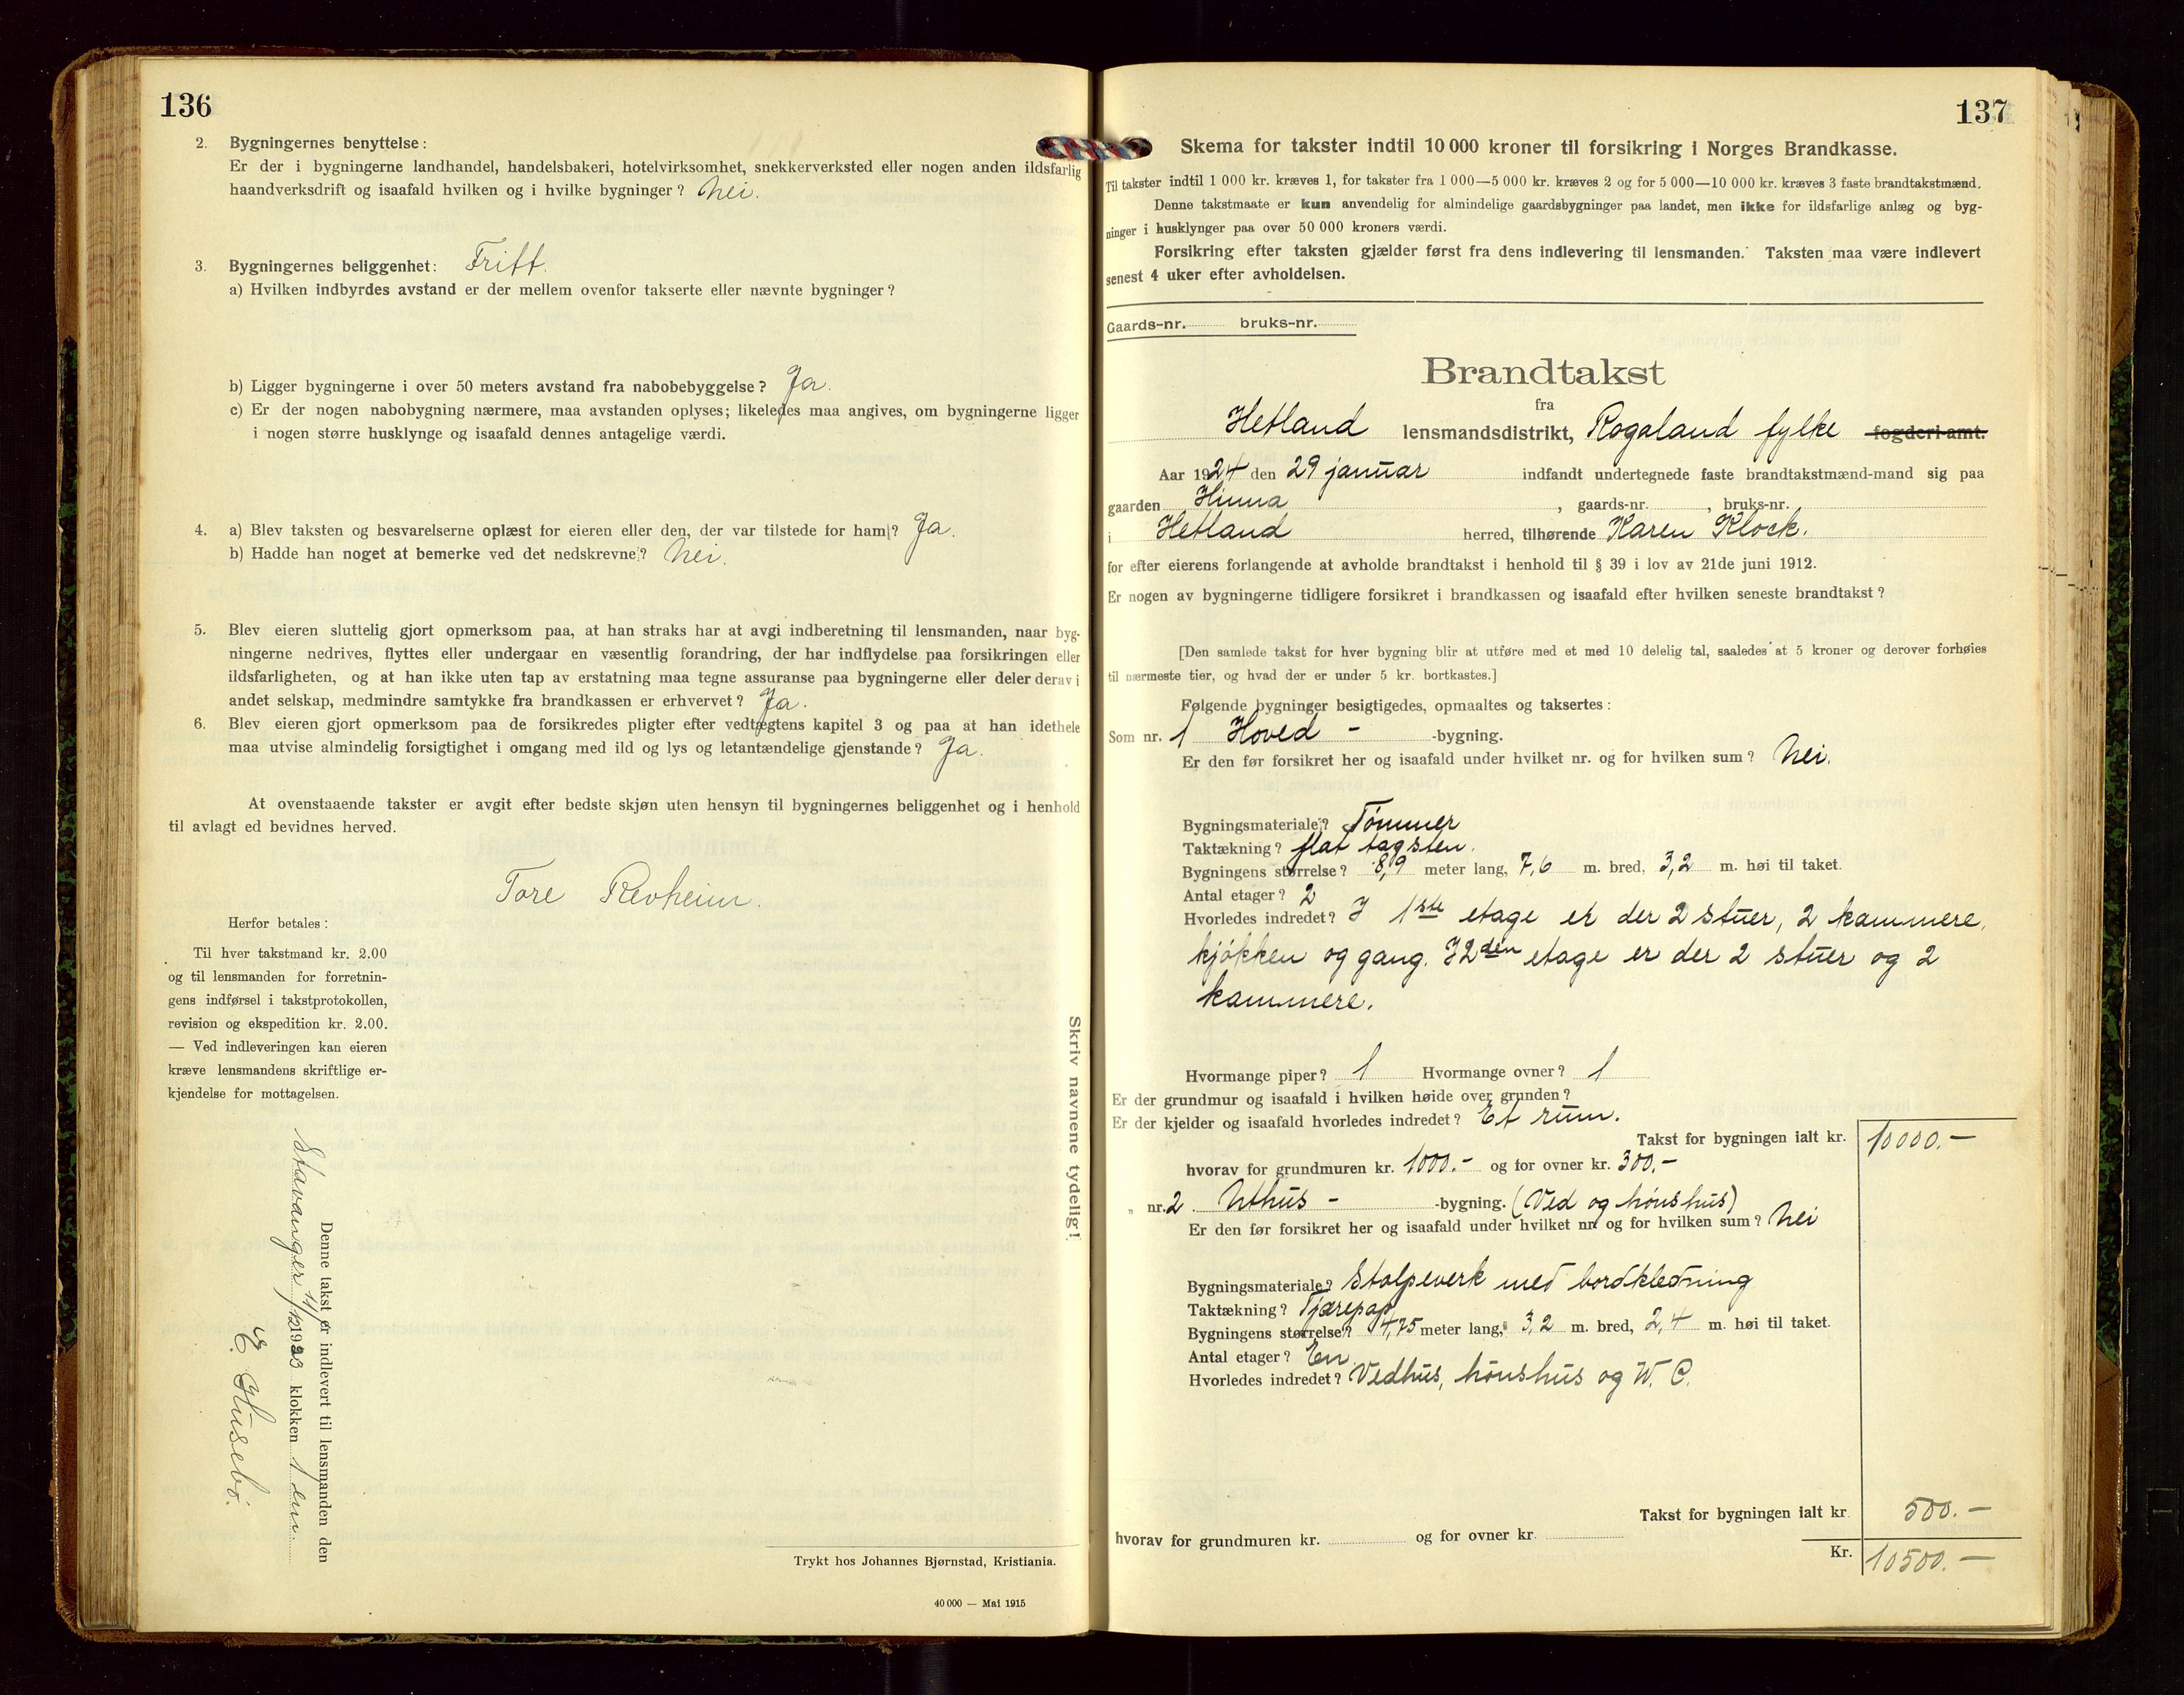 136
2. Bygningernes benyttelse:
Er der i bygningerne landhandel, handelsbakeri, hotelvirksomhet, snekkerverksted eller nogen anden ildsfarlig
haandverksdrift og isaafald hvilken og i hvilke bygninger? Nei.
3. Bygningernes beliggenhet: Fritt.
a) Hvilken indbyrdes avstand er der mellem ovenfor takserte eller nævnte bygninger?
b) Ligger bygningerne i over 50 meters avstand fra nabobebyggelse? Ja.
c) Er der nogen nabobygning nærmere, maa avstanden oplyses; likeledes maa angives, om bygningerne ligger
i nogen større husklynge og isaafald dennes antagelige værdi.
4. a) Blev taksten og besvarelserne oplæst for eieren eller den, der var tilstede for ham? Ja.
b) Hadde han noget at bemerke ved det nedskrevne? Nei.
5. Blev eieren sluttelig gjort opmerksom paa, at han straks har at avgi indberetning til lensmanden, naar byg-
ningerne nedrives, flyttes eller undergaar en væsentlig forandring, der har indflydelse paa forsikringen eller
ildsfarligheten, og at han ikke uten tap av erstatning maa tegne assuranse paa bygningerne eller deler derav i
andet selskap, medmindre samtykke fra brandkassen er erhvervet? Ja.
6. Blev eieren gjort opmerksom paa de forsikredes pligter efter vedtægtens kapitel 3 og paa at han idethele
maa utvise almindelig forsigtighet i omgang med ild og lys og letantændelige gjenstande? Ja.
At ovenstaaende takster er avgit efter bedste skjøn uten hensyn til bygningernes beliggenhet og i henhold
til avlagt ed bevidnes herved.
Tore Revheim.
Herfor betales:
Til hver takstmand kr. 2.00
og til lensmanden for forretnin-
gens indførsel i takstprotokollen,
revision og ekspedition kr. 2.00.
— Ved indleveringen kan eieren
kræve lensmandens skriftlige er-
kjendelse for mottagelsen.
Denne takst er indlevert til lensmanden den
Stavanger 11/12 1923 klokken 1 em.
E. Husebø.
Skriv navnene tydelig!
Trykt hos Johannes Bjørnstad, Kristiania.
40 000 — Mai 1915
137
Skema for takster indtil 10 000 kroner til forsikring i Norges Brandkasse.
Til takster indtil 1 000 kr. kræves 1, for takster fra 1 000—5 000 kr. kræves 2 og for 5 000—10 000 kr. kræves 3 faste brandtakstmænd.
Denne takstmaate er kun anvendelig for almindelige gaardsbygninger paa landet, men ikke for ildsfarlige anlæg og byg-
ninger i husklynger paa over 50 000 kroners værdi.
Forsikring efter taksten gjælder først fra dens indlevering til lensmanden. Taksten maa være indlevert
senest 4 uker efter avholdelsen.
Gaards-nr. bruks-nr.
Brandtakst
fra
Hetland lensmandsdistrikt, Rogaland fylke fogderi-amt.
Aar 1924 den 29 januar indfandt undertegnede faste brandtakstmænd-mand sig paa
gaarden Hinna, gaards-nr. , bruks-nr.
i Hetland herred, tilhørende Karen Klock.
for efter eierens forlangende at avholde brandtakst i henhold til § 39 i lov av 21de juni 1912.
Er nogen av bygningerne tidligere forsikret i brandkassen og isaafald efter hvilken seneste brandtakst?
[Den samlede takst for hver bygning blir at utføre med et med 10 delelig tal, saaledes at 5 kroner og derover forhøies
til nærmeste tier, og hvad der er under 5 kr. bortkastes.]
Følgende bygninger besigtigedes, opmaaltes og taksertes:
Som nr. 1 Hoved - -bygning.
Er den før forsikret her og isaafald under hvilket nr. og for hvilken sum? Nei.
Bygningsmateriale? Tømmer
Taktækning? flat tagsten.
Bygningens størrelse? 8,9 meter lang, 7,6 m. bred, 3,2 m. høi til taket.
Antal etager? 2
Hvorledes indredet? I 1ste etage er der 2 stuer, 2 kammere,
kjøkken og gang. I 2den etage er der 2 stuer og 2
kammere.
Hvormange piper? 1 Hvormange ovner? 1
Er der grundmur og isaafald i hvilken høide over grunden?
Er der kjelder og isaafald hvorledes indredet? Et rum.
Takst for bygningen ialt kr. 10000.—
hvorav for grundmuren kr. 1000.- og for ovner kr. 300,-
„ nr. 2 Uthus - -bygning. (Ved og hønshus)
Er den før forsikret her og isaafald under hvilket nr. og for hvilken sum? Nei
Bygningsmateriale? Stolpeverk med bordkledning
Taktækning? Tjærepap
Bygningens størrelse? 4,75 meter lang, 3,2 m. bred, 2,4 m. høi til taket.
Antal etager? En.
Hvorledes indredet? Vedhus, hønshus og W. C.
Takst for bygningen ialt kr. 500.—
hvorav for grundmuren kr. og for ovner kr.
Kr. 10500.—